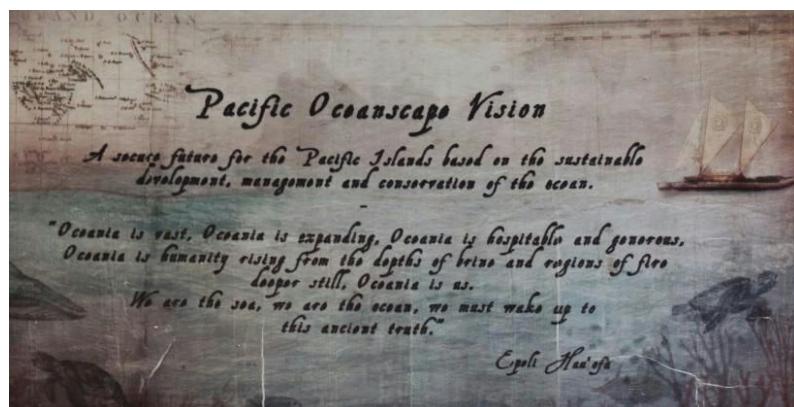 GRAND OCEAN
Pacific Oceanscape Vision
A secure future for the Pacific Islands based on the sustainable
development, management and conservation of the ocean.
-
"Oceania is vast, Oceania is expanding, Oceania is hospitable and generous,
Oceania is humanity rising from the depths of brine and regions of fire
deeper still, Oceania is us.
We are the sea, we are the ocean, we must wake up to
this ancient truth."
Epeli Hau'ofa